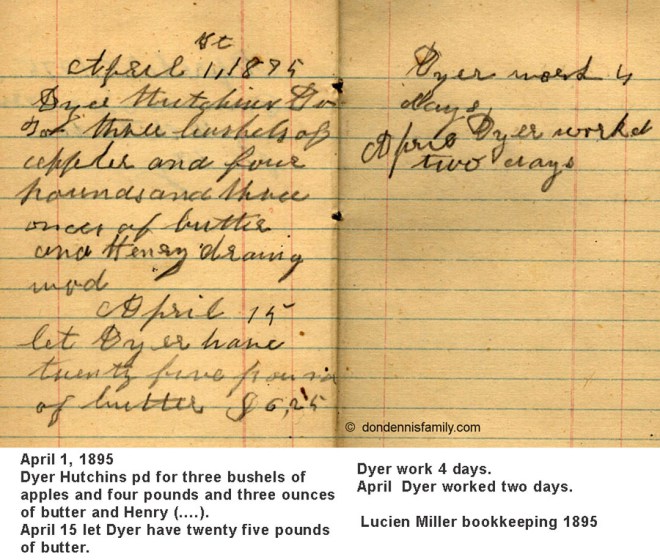 st
April 1, 1895
Dyer Hutchins Dr
For three bushels of
apples and four
pounds and three
onces of butter
and Henry drawing
wod
April 15
let Dyer have
twenty five pound
of butter $6,25
Dyer work 4
days
April Dyer worked
two days
© dondennisfamily.com
April 1, 1895
Dyer Hutchins pd for three bushels of
apples and four pounds and three ounces
of butter and Henry (....).
April 15 let Dyer have twenty five pounds
of butter.
Dyer work 4 days.
April Dyer worked two days.
Lucien Miller bookkeeping 1895